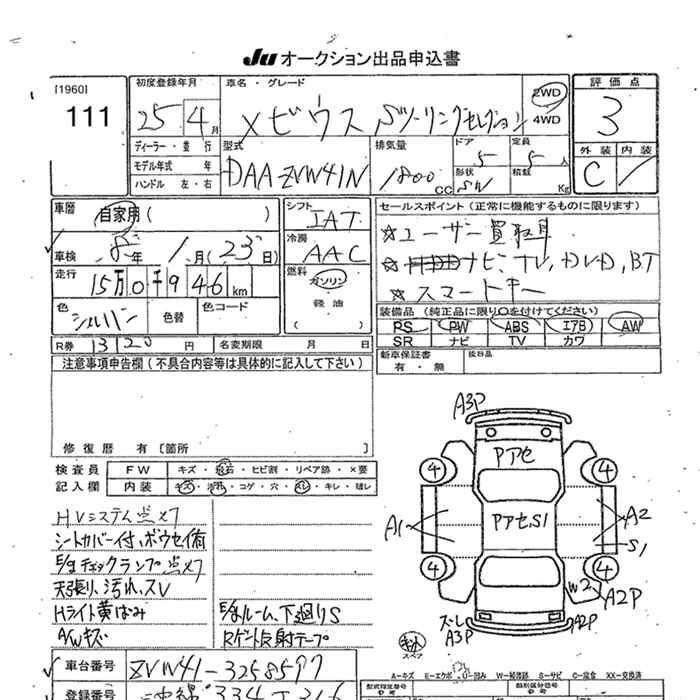 JU オークション出品申込書
[1960]
111
初度登録年月
25年 4月
車名・グレード
メビウス Sツーリングセレクション
2WD
4WD
評価点
3
外装 内装
C
ディーラー・並行
モデル年式 年
ハンドル 左・右
型式
DAA-ZVW41N
排気量
1800 CC
ドア
5
形状
SW
定員
5人
積載
Kg
車歴
自家用( )
車検
年 1月(23日)
走行
15万0千946km
色
シルバー
色替
色コード
R券 1 3 1 2 0 円
名変期限 月 日
シフト
IAT
冷房
AAC
燃料
ガソリン
軽油
( )
セールスポイント(正常に機能するものに限ります)
☆ユーザー買取車
☆ナビ、TV、DVD、BT
☆スマートキー
装備品(純正品に限り○を付けてください)
PS PW ABS エアB AW
SR ナビ TV カワ
新車保証書
有・無
後日品
注意事項申告欄(不具合内容等は具体的に記入して下さい)
修復歴 有〔箇所 〕
検査員
記入欄
FW キズ・飛石・ヒビ割・リペア跡・×要
内装 キズ・汚れ・コゲ・穴・スレ・キレ・破レ
HVシステム点メツ
シートカバー付、ボウセイ済
E/gチェックランプ点メツ
天張り、汚れ、スレ
Hライト黄ばみ
A/Wキズ
E/gルーム、下廻りS
Rゲート反射テープ
A3P
4
4
Pアセ
Pアセ、S1
A1
A2
S1
4
4
W2
A2P
ズレ
A3P
A2P
キズ
スペア
A-キズ E-エクボ U-凹み W-補修跡 S-サビ C-腐食 XX-交換済
車台番号
ZVW41-3258577
登録番号
型式指定番号
類別区分番号